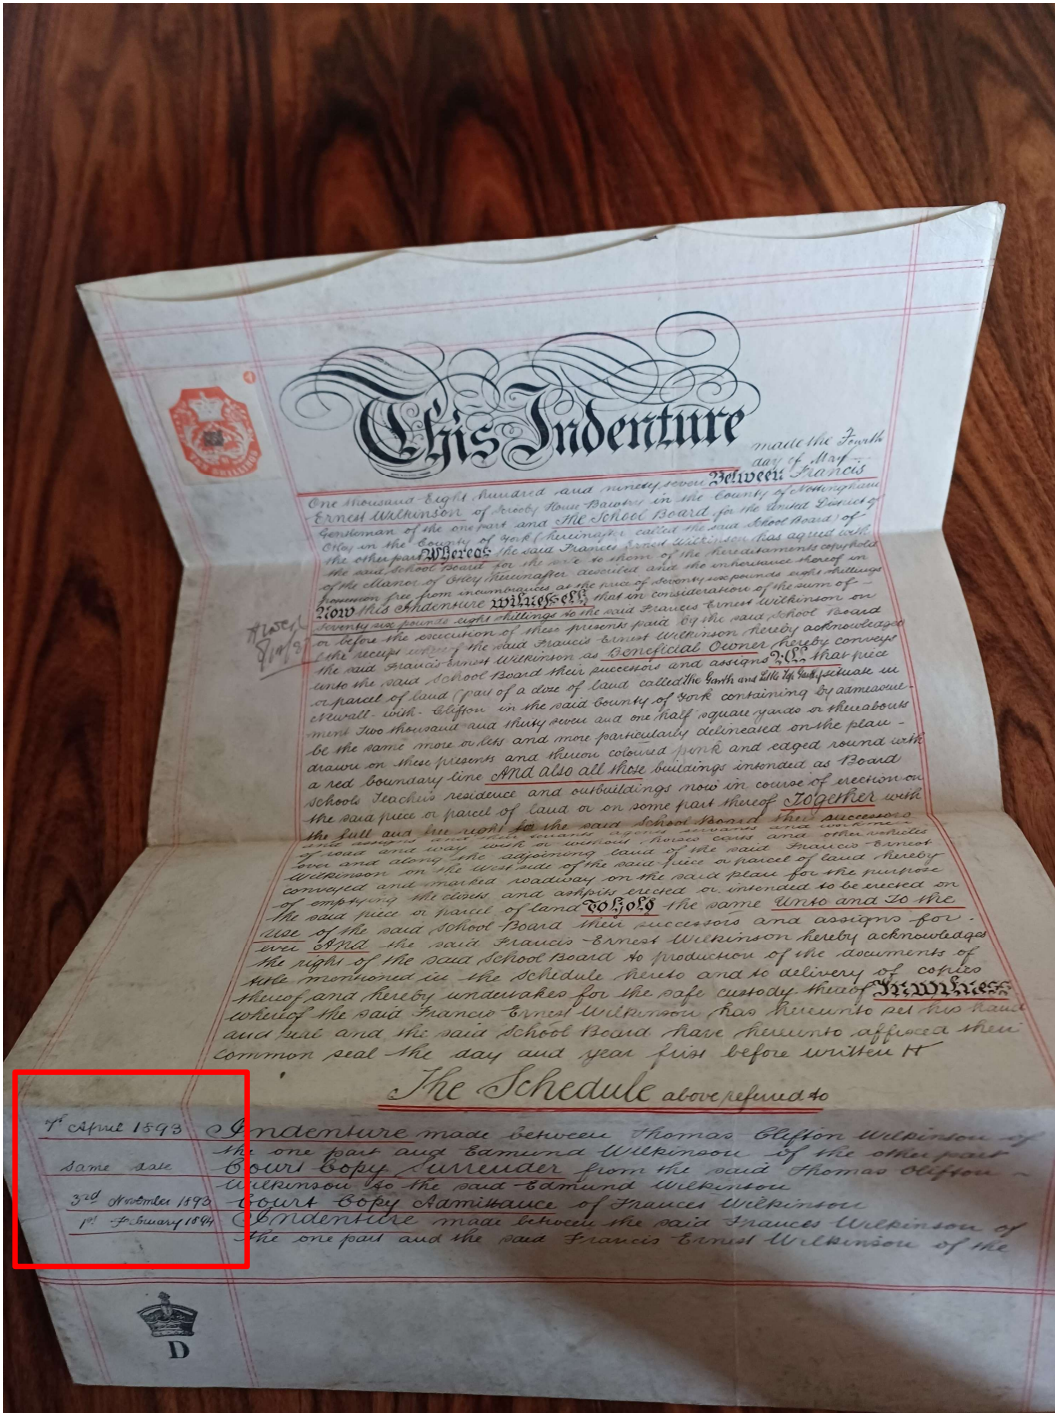 This Indenture made the Fourth
day of May
One thousand Eight hundred and ninety seven Between Francis
Ernest Wilkinson of Scrooby House Bawtry in the County of Nottingham
Gentleman of the one part and The School Board for the United District of
Otley in the County of York (hereinafter called the said School Board) of
the other part Whereas the said Francis Ernest Wilkinson has agreed with
the said School Board for the sale to them of the hereditaments copyhold
of the Manor of Otley hereinafter described and the inheritance thereof in
possession free from incumbrances at the price of Seventy six pounds eight shillings
Now this Indenture witnesseth that in consideration of the sum of
Seventy six pounds eight shillings to the said Francis Ernest Wilkinson on
or before the execution of these presents paid by the said School Board
(the receipt whereof the said Francis Ernest Wilkinson hereby acknowledges
the said Francis Ernest Wilkinson as Beneficial Owner hereby conveys
unto the said School Board their successors and assigns All that piece
or parcel of land (part of a close of land called The Garth and Little situate in
Newall-with-Clifton in the said County of York containing by admeasure-
ment Two thousand and thirty seven and one half square yards or thereabouts
be the same more or less and more particularly delineated on the plan
drawn on these presents and thereon coloured pink and edged round with
a red boundary line And also all those buildings intended as Board
Schools Teacher's residence and outbuildings now in course of erection on
the said piece or parcel of land or on some part thereof Together with
the full and free right for the said School Board their successors
and assigns and their tenants agents servants and workmen
of road and way with or without horses carts and other vehicles
over and along the adjoining land of the said Francis Ernest
Wilkinson on the West side of the said piece or parcel of land hereby
conveyed and marked roadway on the said plan for the purpose
of emptying the closets and ashpits erected or intended to be erected on
the said piece or parcel of land To Hold the same Unto and To the
Use of the said School Board their successors and assigns for
ever And the said Francis Ernest Wilkinson hereby acknowledges
the right of the said School Board to production of the documents of
title mentioned in the Schedule hereto and to delivery of copies
thereof and hereby undertakes for the safe custody thereof In witness
whereof the said Francis Ernest Wilkinson has hereunto set his hand
and seal and the said School Board have hereunto affixed their
common seal the day and year first before written
The Schedule above referred to
April 1893 Indenture made between Thomas Clifton Wilkinson of
the one part and Edmund Wilkinson of the other part
Same date Court Copy Surrender from the said Thomas Clifton
Wilkinson to the said Edmund Wilkinson
3rd November 1893 Court Copy Admittance of Frances Wilkinson
1st February 1894 Indenture made between the said Frances Wilkinson of
the one part and the said Francis Ernest Wilkinson of the
D